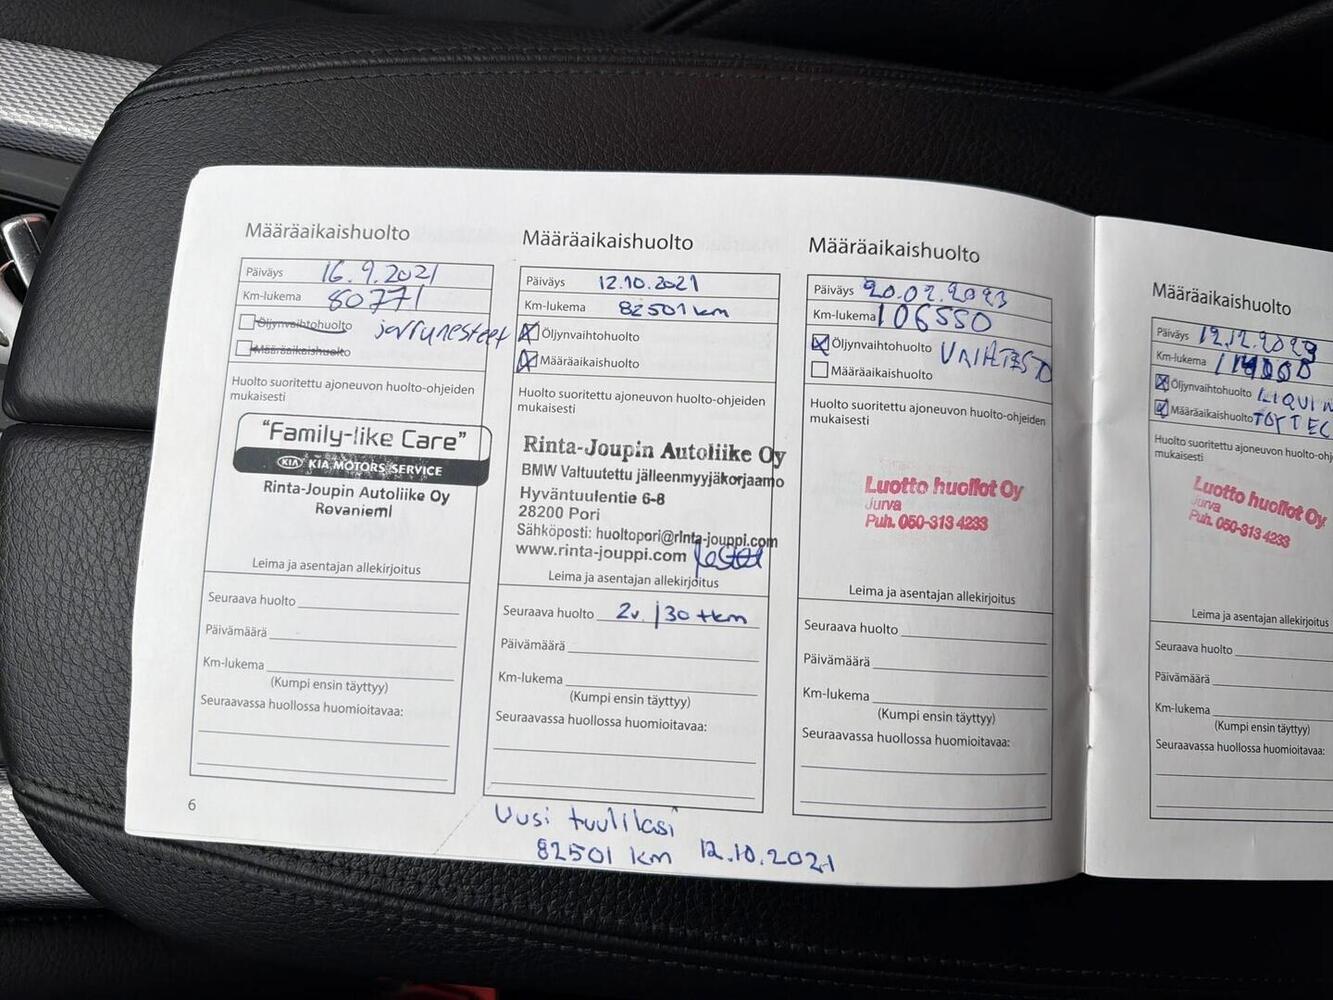 Määräaikaishuolto
Päiväys 16.9.2021
Km-lukema 80771
Öljynvaihtohuolto jarrunesteet
Määräaikaishuolto
Huolto suoritettu ajoneuvon huolto-ohjeiden
mukaisesti
"Family-like Care"
KIA KIA MOTORS SERVICE
Rinta-Joupin Autoliike Oy
Rovaniemi
Leima ja asentajan allekirjoitus
Seuraava huolto
Päivämäärä
Km-lukema
(Kumpi ensin täyttyy)
Seuraavassa huollossa huomioitavaa:
6
Määräaikaishuolto
Päiväys 12.10.2021
Km-lukema 82501 km
Öljynvaihtohuolto
Määräaikaishuolto
Huolto suoritettu ajoneuvon huolto-ohjeiden
mukaisesti
Rinta-Joupin Autoliike Oy
BMW Valtuutettu jälleenmyyjäkorjaamo
Hyväntuulentie 6-8
28200 Pori
Sähköposti: huoltopori@rinta-jouppi.com
www.rinta-jouppi.com
Leima ja asentajan allekirjoitus
Seuraava huolto 2v. / 30 tkm
Päivämäärä
Km-lukema
(Kumpi ensin täyttyy)
Seuraavassa huollossa huomioitavaa:
Uusi tuulilasi
82501 km 12.10.2021
Määräaikaishuolto
Päiväys 20.02.2023
Km-lukema 106550
Öljynvaihtohuolto
Määräaikaishuolto
Huolto suoritettu ajoneuvon huolto-ohjeiden
mukaisesti
Luotto huollot Oy
Jurva
Puh. 050-313 4233
Leima ja asentajan allekirjoitus
Seuraava huolto
Päivämäärä
Km-lukema
(Kumpi ensin täyttyy)
Seuraavassa huollossa huomioitavaa:
Määräaikaishuolto
Päiväys 12.12.2023
Km-lukema
Öljynvaihtohuolto LIQUI
Määräaikaishuolto
Huolto suoritettu ajoneuvon
mukaisesti
Luotto huollot Oy
Jurva
Puh. 050-313 4233
Leima ja asentajan allekirjoitus
Seuraava huolto
Päivämäärä
Km-lukema
(Kumpi ensin täyttyy)
Seuraavassa huollossa huomioitavaa: